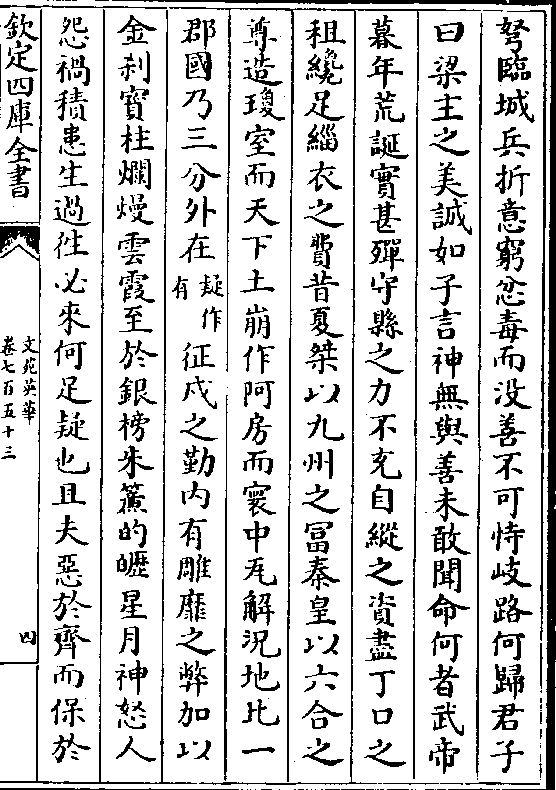 弩臨城兵折意窮忿毒而没善不可恃岐路何歸君子
曰梁主之美誠如子言神無與善未敢聞命何者武帝
暮年荒誕實甚殫守縣之力不充自縱之資盡丁口之
租纔足緇衣之費昔夏桀以九州之冨秦皇以六合之
尊造瓊室而天下土崩作阿房而寰中瓦解況地比一
郡國乃三分外在疑作有征戍之勤内有雕靡之弊加以
金刹寳柱爛熳雲霞至於銀榜朱簾的皪星月神怒人
怨禍積患生過徃必來何足疑也且夫惡於齊而保於
欽定四庫全書
文苑英華
卷七百五十三
四